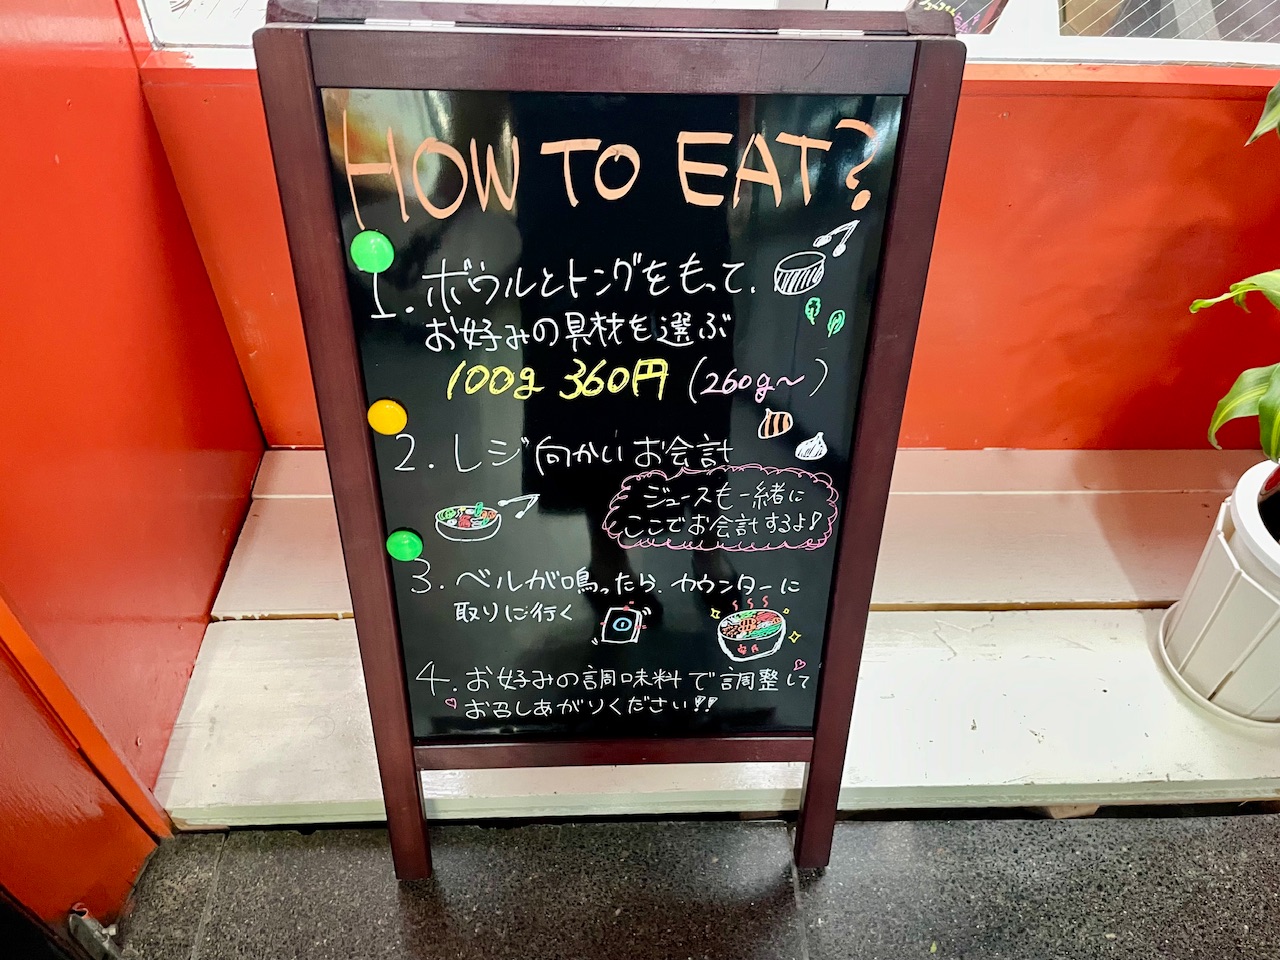 HOW TO EAT?
1. ボウルとトングをもって、
お好みの具材を選ぶ
100g 360円 (260g〜)
2. レジ向かいお会計
ジュースも一緒に
ここでお会計するよ!
3. ベルが鳴ったら、カウンターに
取りに行く
4. お好みの調味料で調整して
お召しあがりください!!